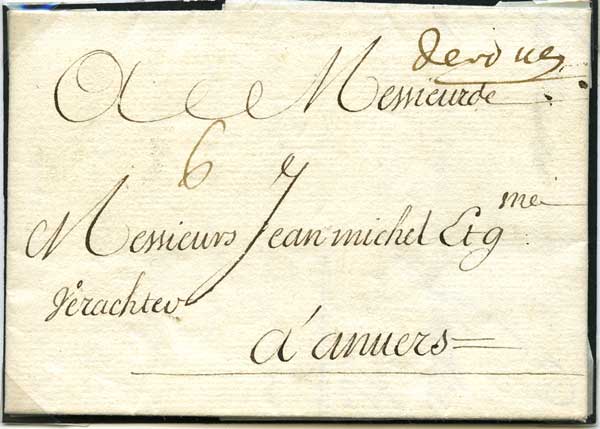 de rouen
A Messieurde
6
Messieurs Jean michel Et g^me
Verachter
a anuers